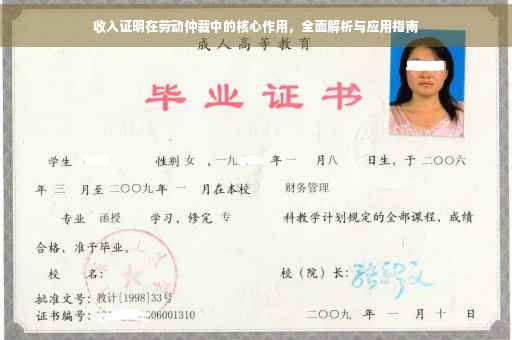 收入证明在劳动仲裁中的核心作用，全面解析与应用指南
成人高等教育
毕业证书
学生 性别 女 ，一九 年 一 月八 日生，于 二〇〇六
年 三 月至 二〇〇九 年 一 月在本校 财务管理
专业 函授 学习，修完 专 科教学计划规定的全部课程，成绩
合格，准予毕业。
校 名： 校（院）长：
批准文号：教计[1998]33号
证书编号： 06001310 二〇〇九 年 一 月 十 日